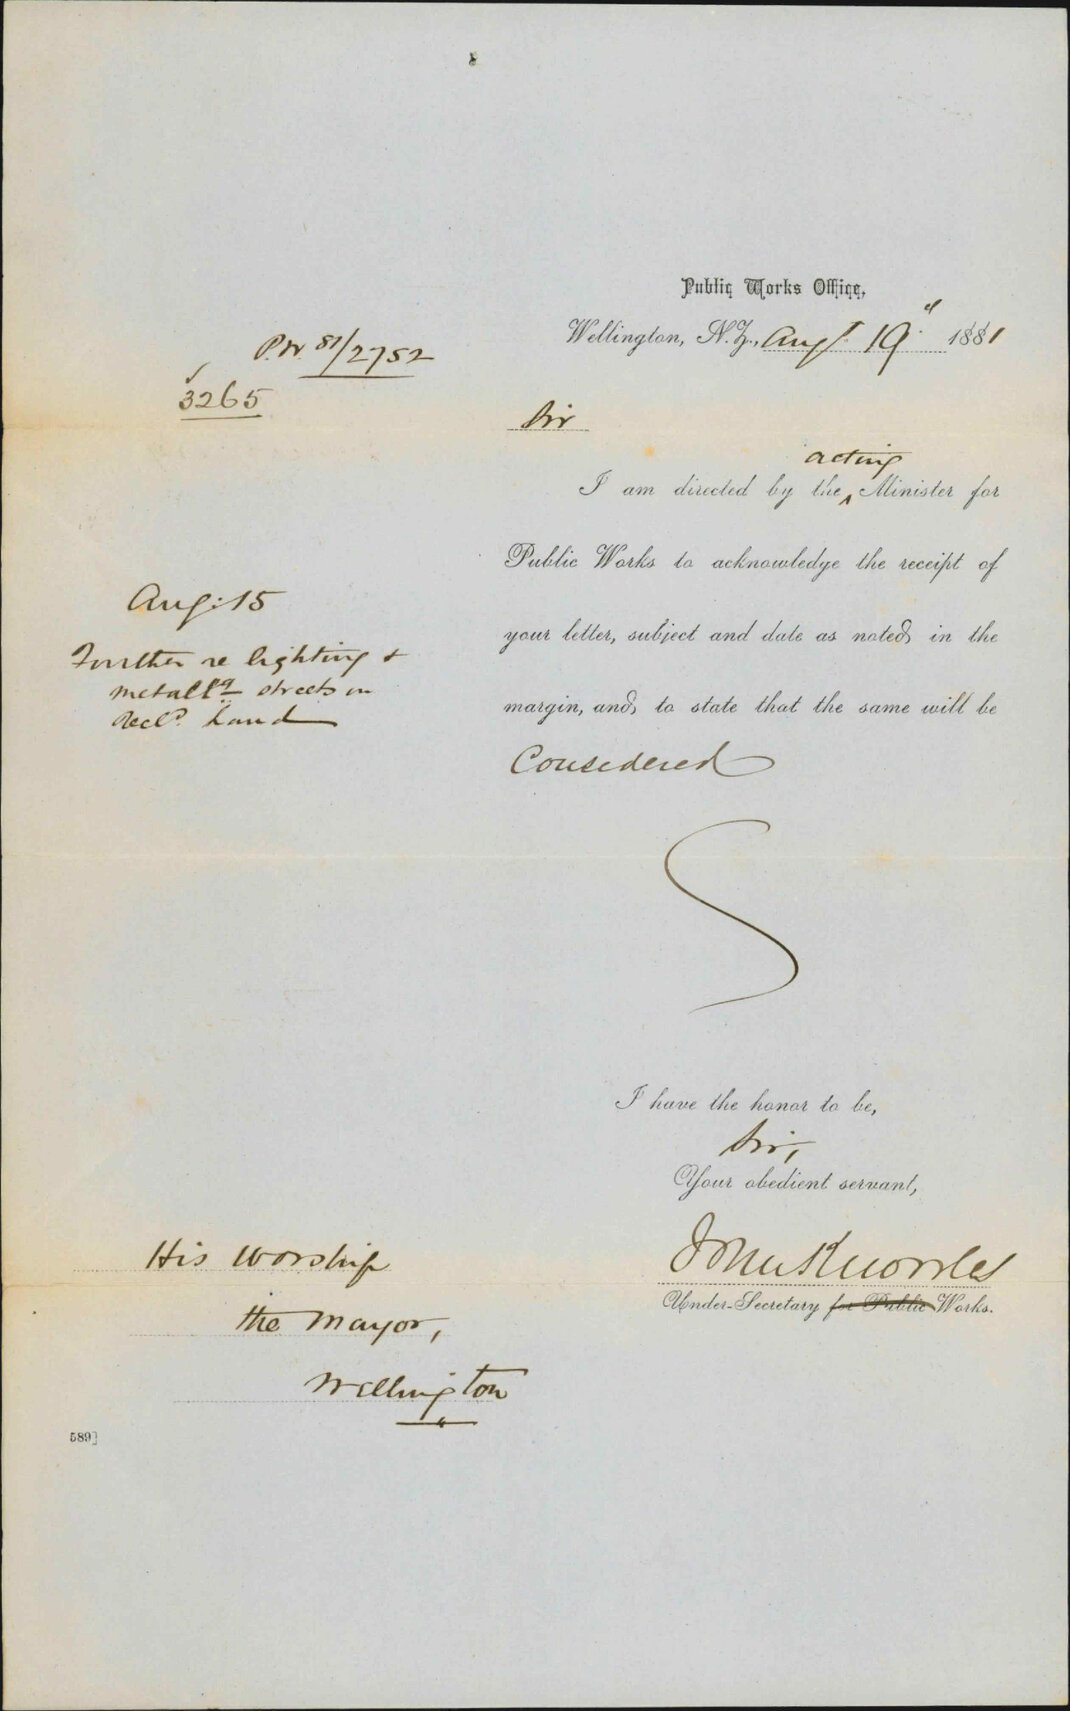 Public Works Office,
Wellington, N.Z., Augt. 19th 1881
P.W. 81/2752
3265
Sir
acting
I am directed by the ^ Minister for
Public Works to acknowledge the receipt of
your letter, subject and date as noted in the
margin, and to state that the same will be
Considered
Aug: 15
Further re lighting &
metallg streets on
Recld. Land
I have the honor to be,
Sir,
Your obedient servant,
John Knowles
Under-Secretary for Public Works.
His Worship
the Mayor,
Wellington
589]